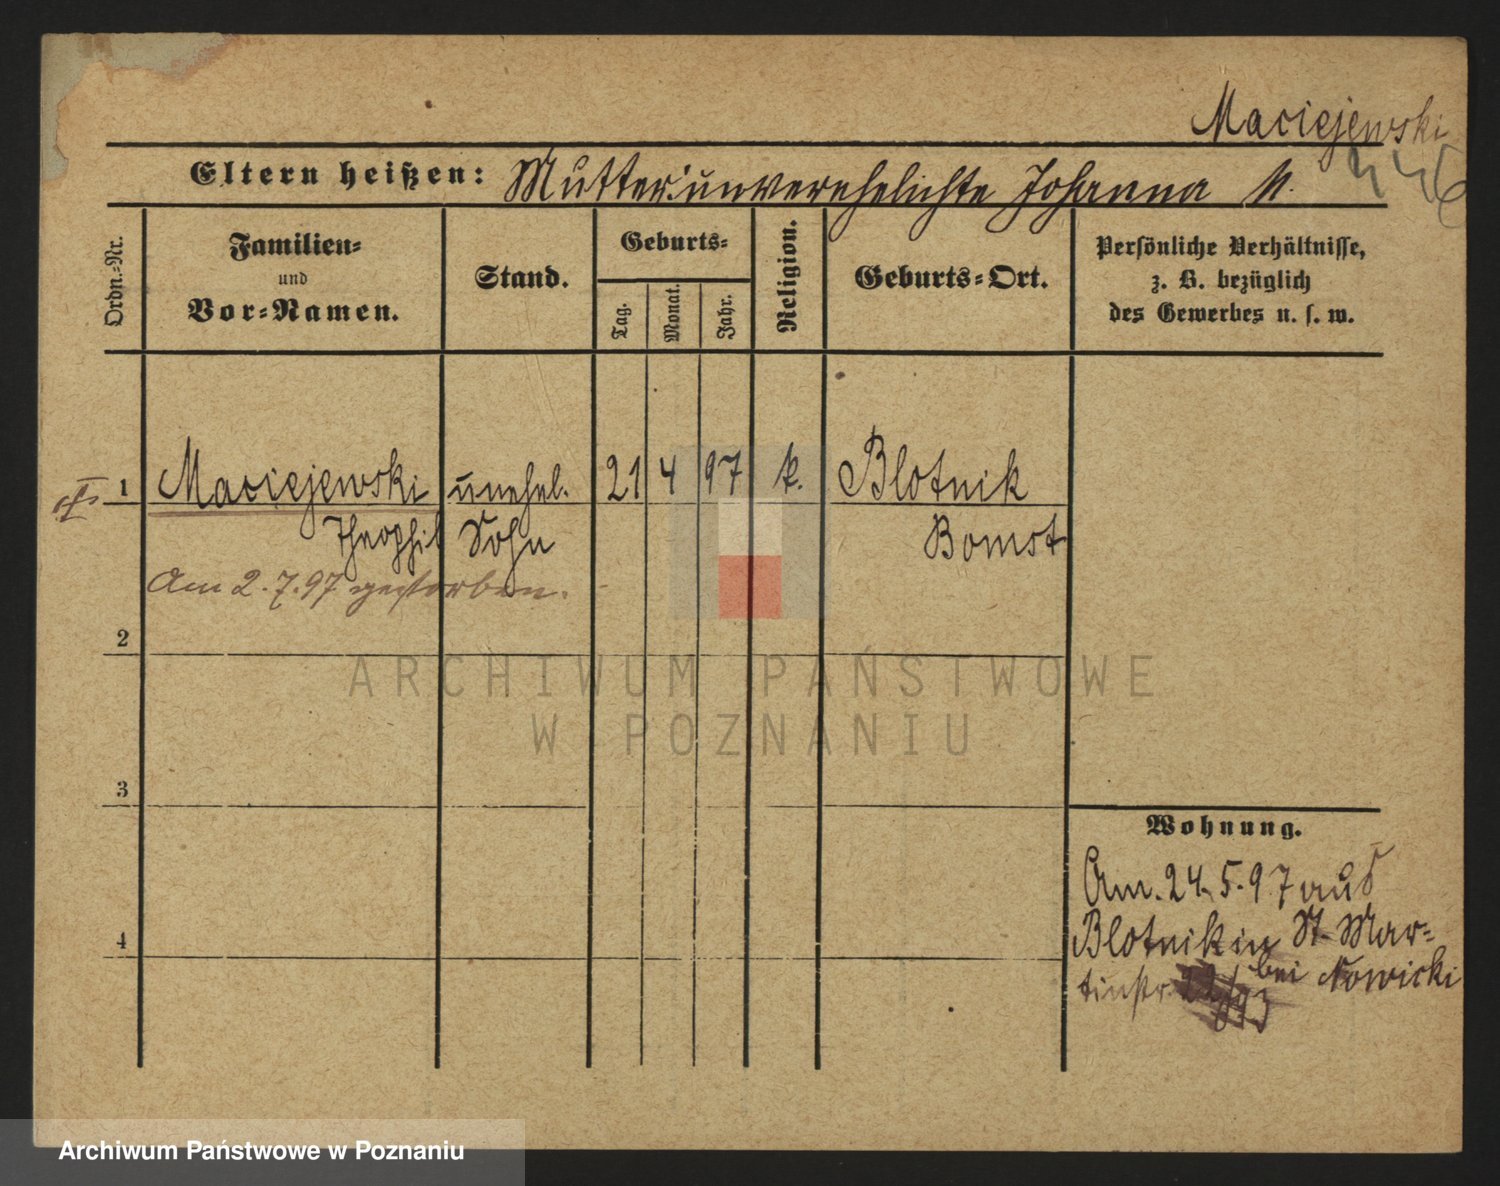 Maciejewski
Eltern heißen: Mutter: unverehelichte Johanna M.
Ordn.-Nr.
Familien-
und
Vor-Namen.
Stand.
Geburts-
Tag.
Monat.
Jahr.
Religion.
Geburts-Ort.
Persönliche Verhältnisse,
z. B. bezüglich
des Gewerbes u. s. w.
1 Maciejewski unehel. 21 4 97 k. Blotnik
Theophil Sohn Bomst
Am 2.7.97 gestorben.
2
ARCHIWUM PAŃSTWOWE
W POZNANIU
3
Wohnung.
Am 24.5.97 aus
Blotnik in St. Mar-
4
tinstr. bei Nowicki
Archiwum Państwowe w Poznaniu